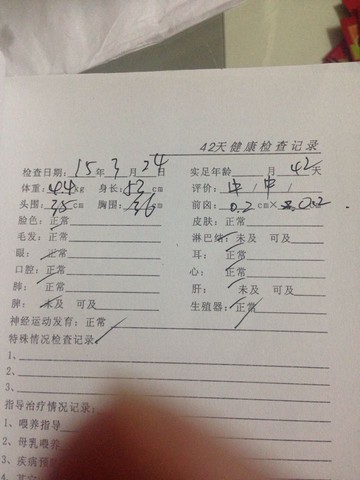 42天健康检查记录
检查日期: 15 年 3 月 24 日 实足年龄 月 42 天
体重: 4.4 kg 身长: 53 cm 评价: 中 / 中 /
头围: 35 cm 胸围: 36 cm 前囟: 0.2 cm× 0.2
脸色: 正常 皮肤: 正常
毛发: 正常 淋巴结: 未及 可及
眼: 正常 耳: 正常
口腔: 正常 心: 正常
肺: 正常 肝: 未及 可及
脾: 未及 可及 生殖器: 正常
神经运动发育: 正常
特殊情况检查记录:
1、
2、
3、
指导治疗情况记录:
1、喂养指导
2、母乳喂养
3、疾病预
4、其它